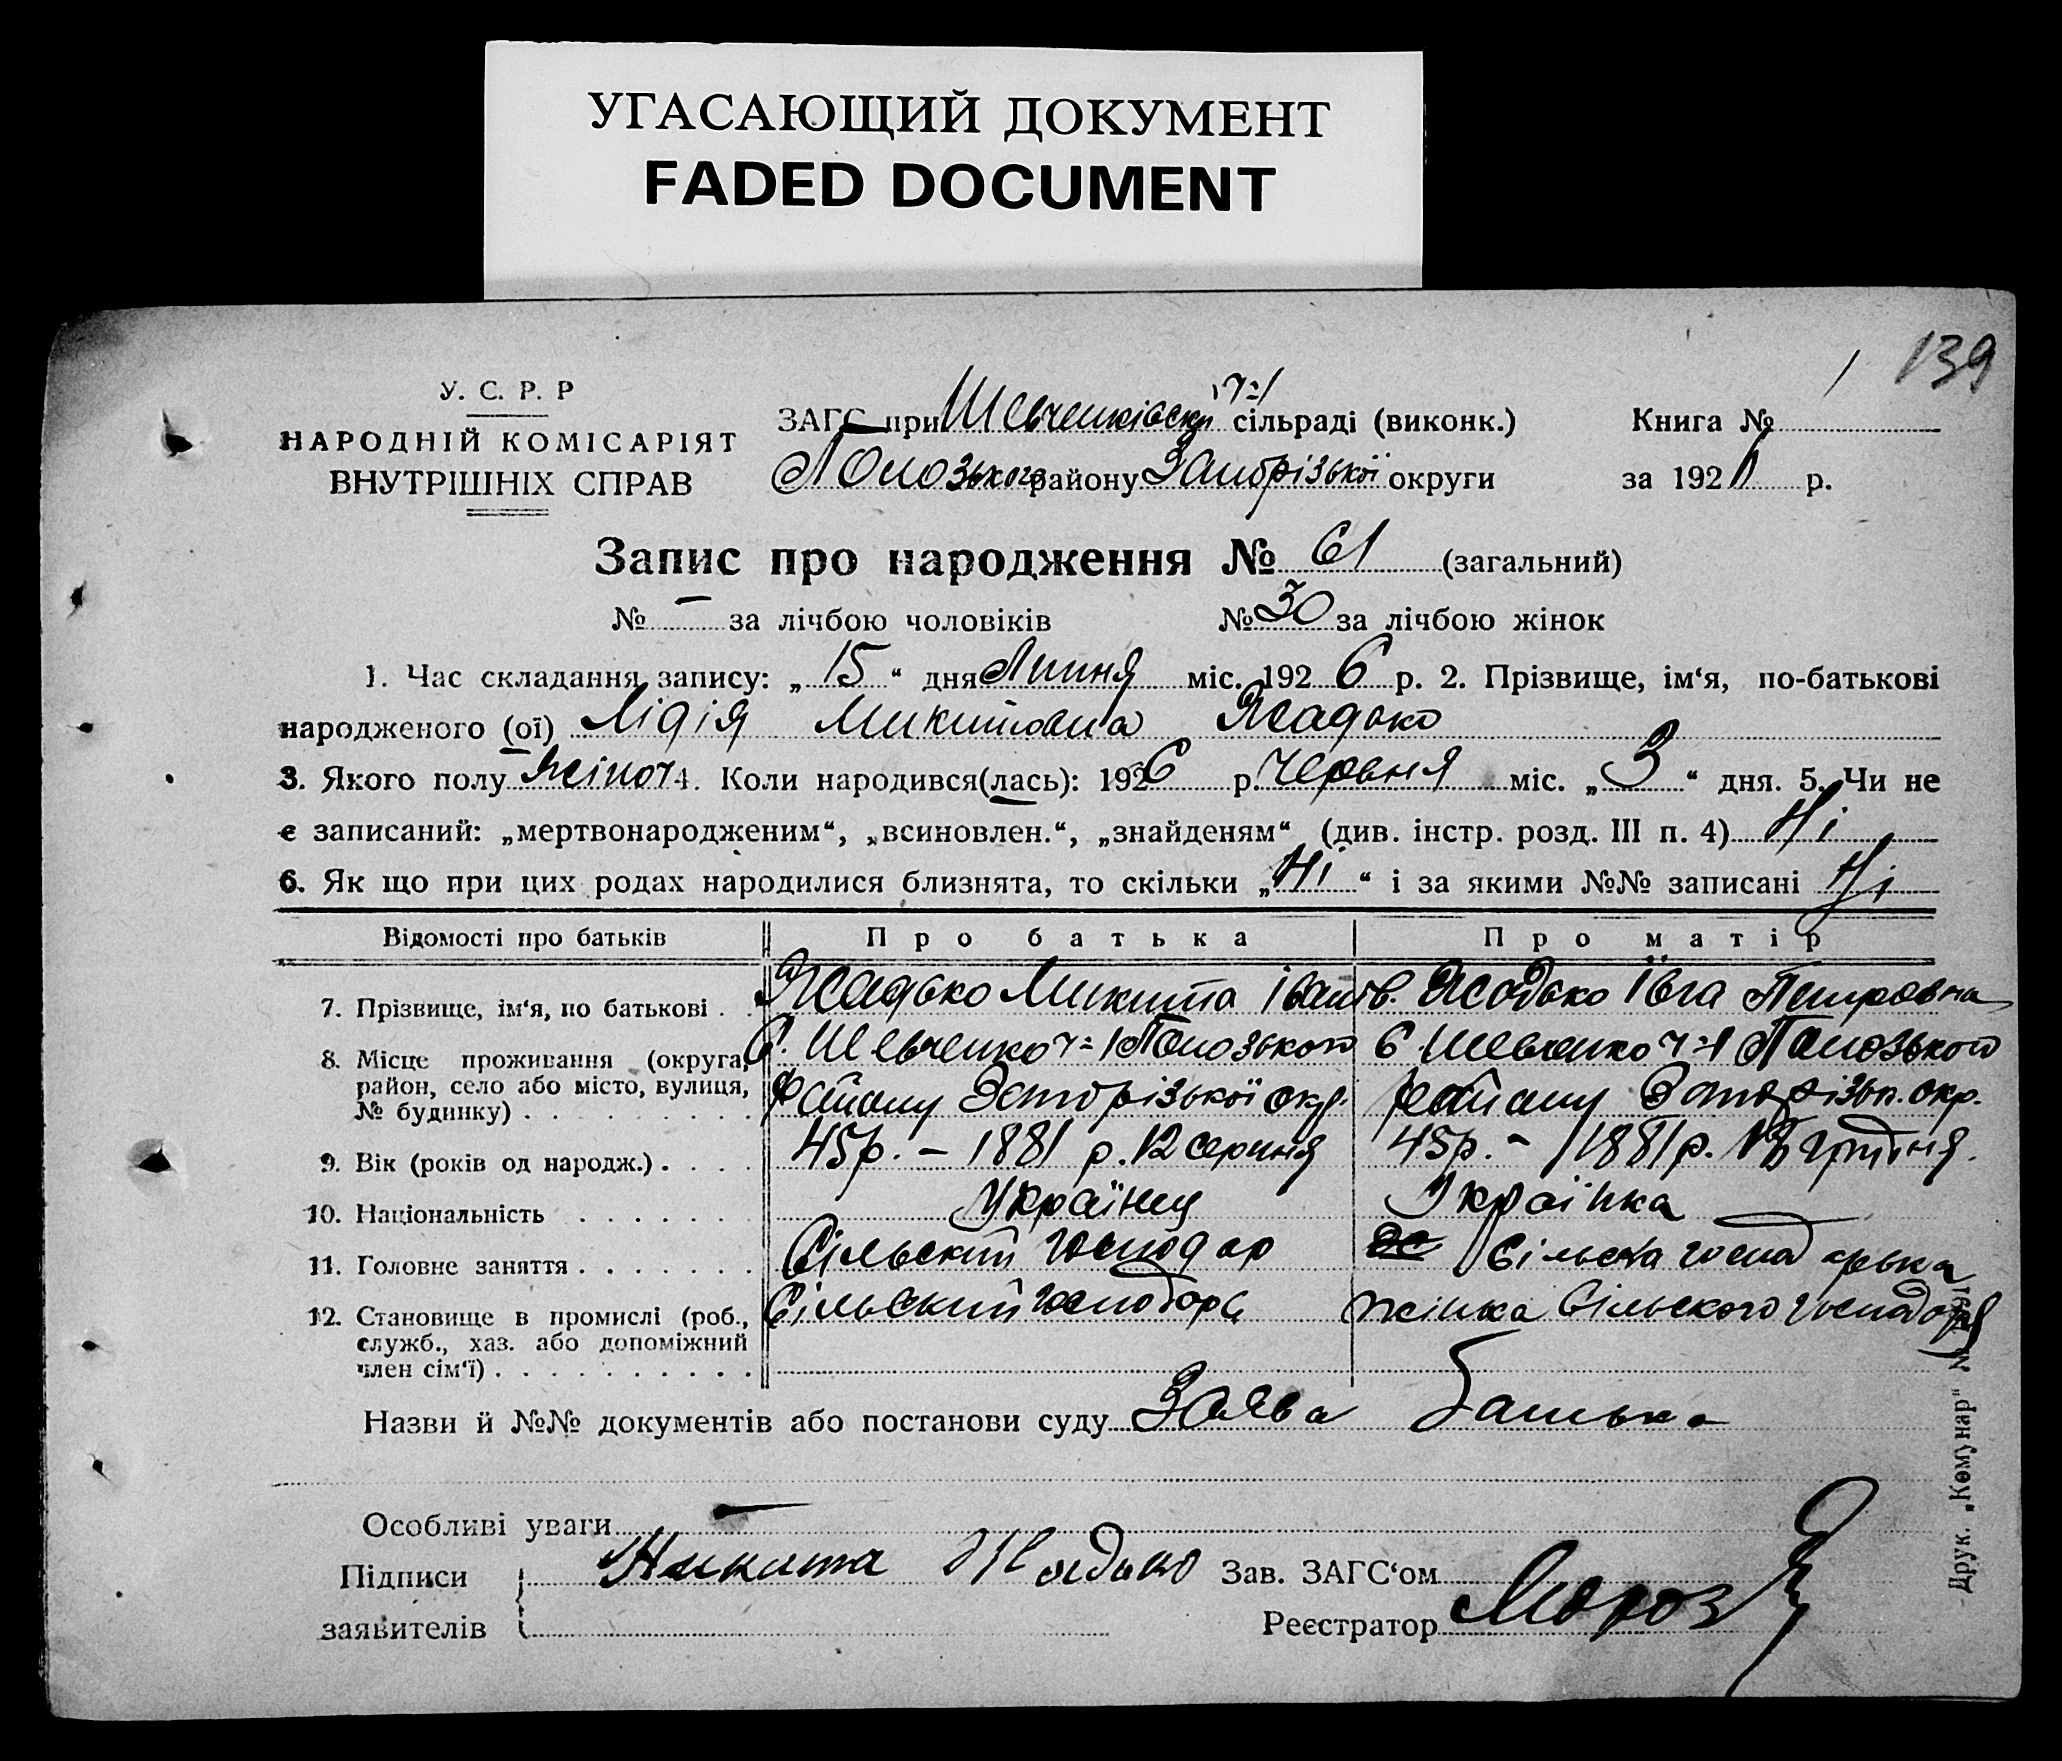 УГАСАЮЩИЙ ДОКУМЕНТ
FADED DOCUMENT
139
У. С. Р. Р
НАРОДНІЙ КОМІСАРІЯТ
ВНУТРІШНІХ СПРАВ
ЗАГС при Шевченківскій ч=1 сільраді (виконк.)
Пологзького району Запорізької округи
Книга №
за 192 р.
Запис про народження № 61 (загальний)
№ – за лічбою чоловіків № 30 за лічбою жінок
1. Час складання запису: „ 15 “ дня Липня міс. 192 6 р. 2. Прізвище, ім‘я, по-батькові
народженого (ої) Лідія Микитовна Жадько
3. Якого полу жіноч 4. Коли народився(лась): 1926 р. Червня міс. „ 3 “ дня. 5. Чи не
є записаний: „мертвонародженим“, „всиновлен.“, „знайденям“ (див. інстр. розд. III п. 4) Ні
6. Як що при цих родах народилися близнята, то скільки „ Ні “ і за якими №№ записані Ні
Відомості про батьків Про батька Про матір
7. Прізвище, ім‘я, по батькові . . Жадько Микита Іванів. Жадько Івга Петровна
8. Місце проживання (округа, С. Шевченко ч=1 Пологзького С. Шевченко ч=1 Пологзького
район, село або місто, вулиця, району Запорізької окр. району Запорізьк. окр.
№ будинку) . . . . . . . . .
9. Вік (років од народж.) . . . . 45р. – 1881 р. 12 серпня 45р. – 1881р. грудня.
10. Національність . . . . . . . Українец Українка
11. Головне заняття . . . . . . . Сільский господар Сільска господарька
12. Становище в промислі (роб., Сільский господарь жінка Сільского господаря
служб., хаз. або допоміжний
член сім‘ї) . . . . . . . . . .
Назви й №№ документів або постанови суду Заява батька
Особливі уваги –
Підписи Никита Жадько Зав. ЗАГС‘ом
заявителів Реєстратор Мороз
Друк. „Комунар“ №